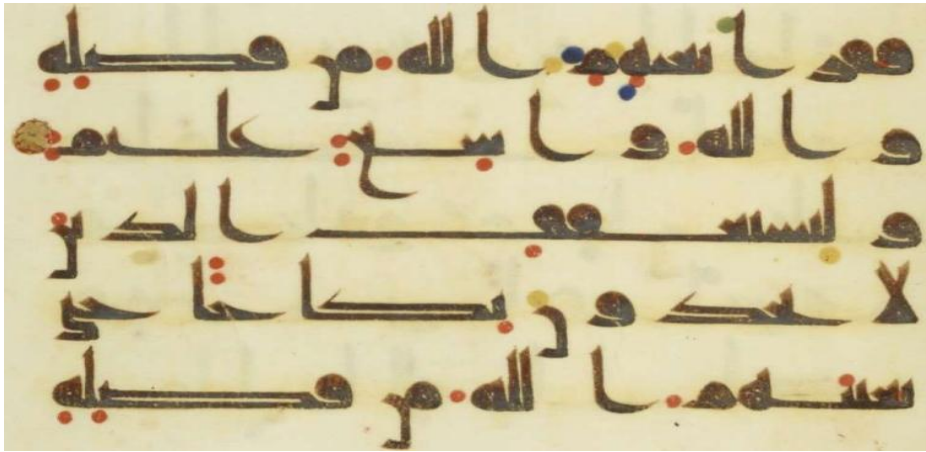 فقرا يغنيهم الله من فضله
والله واسع عليم
وليستعفف الذين
لا يجدون نكاحا حتى
يغنيهم الله من فضله